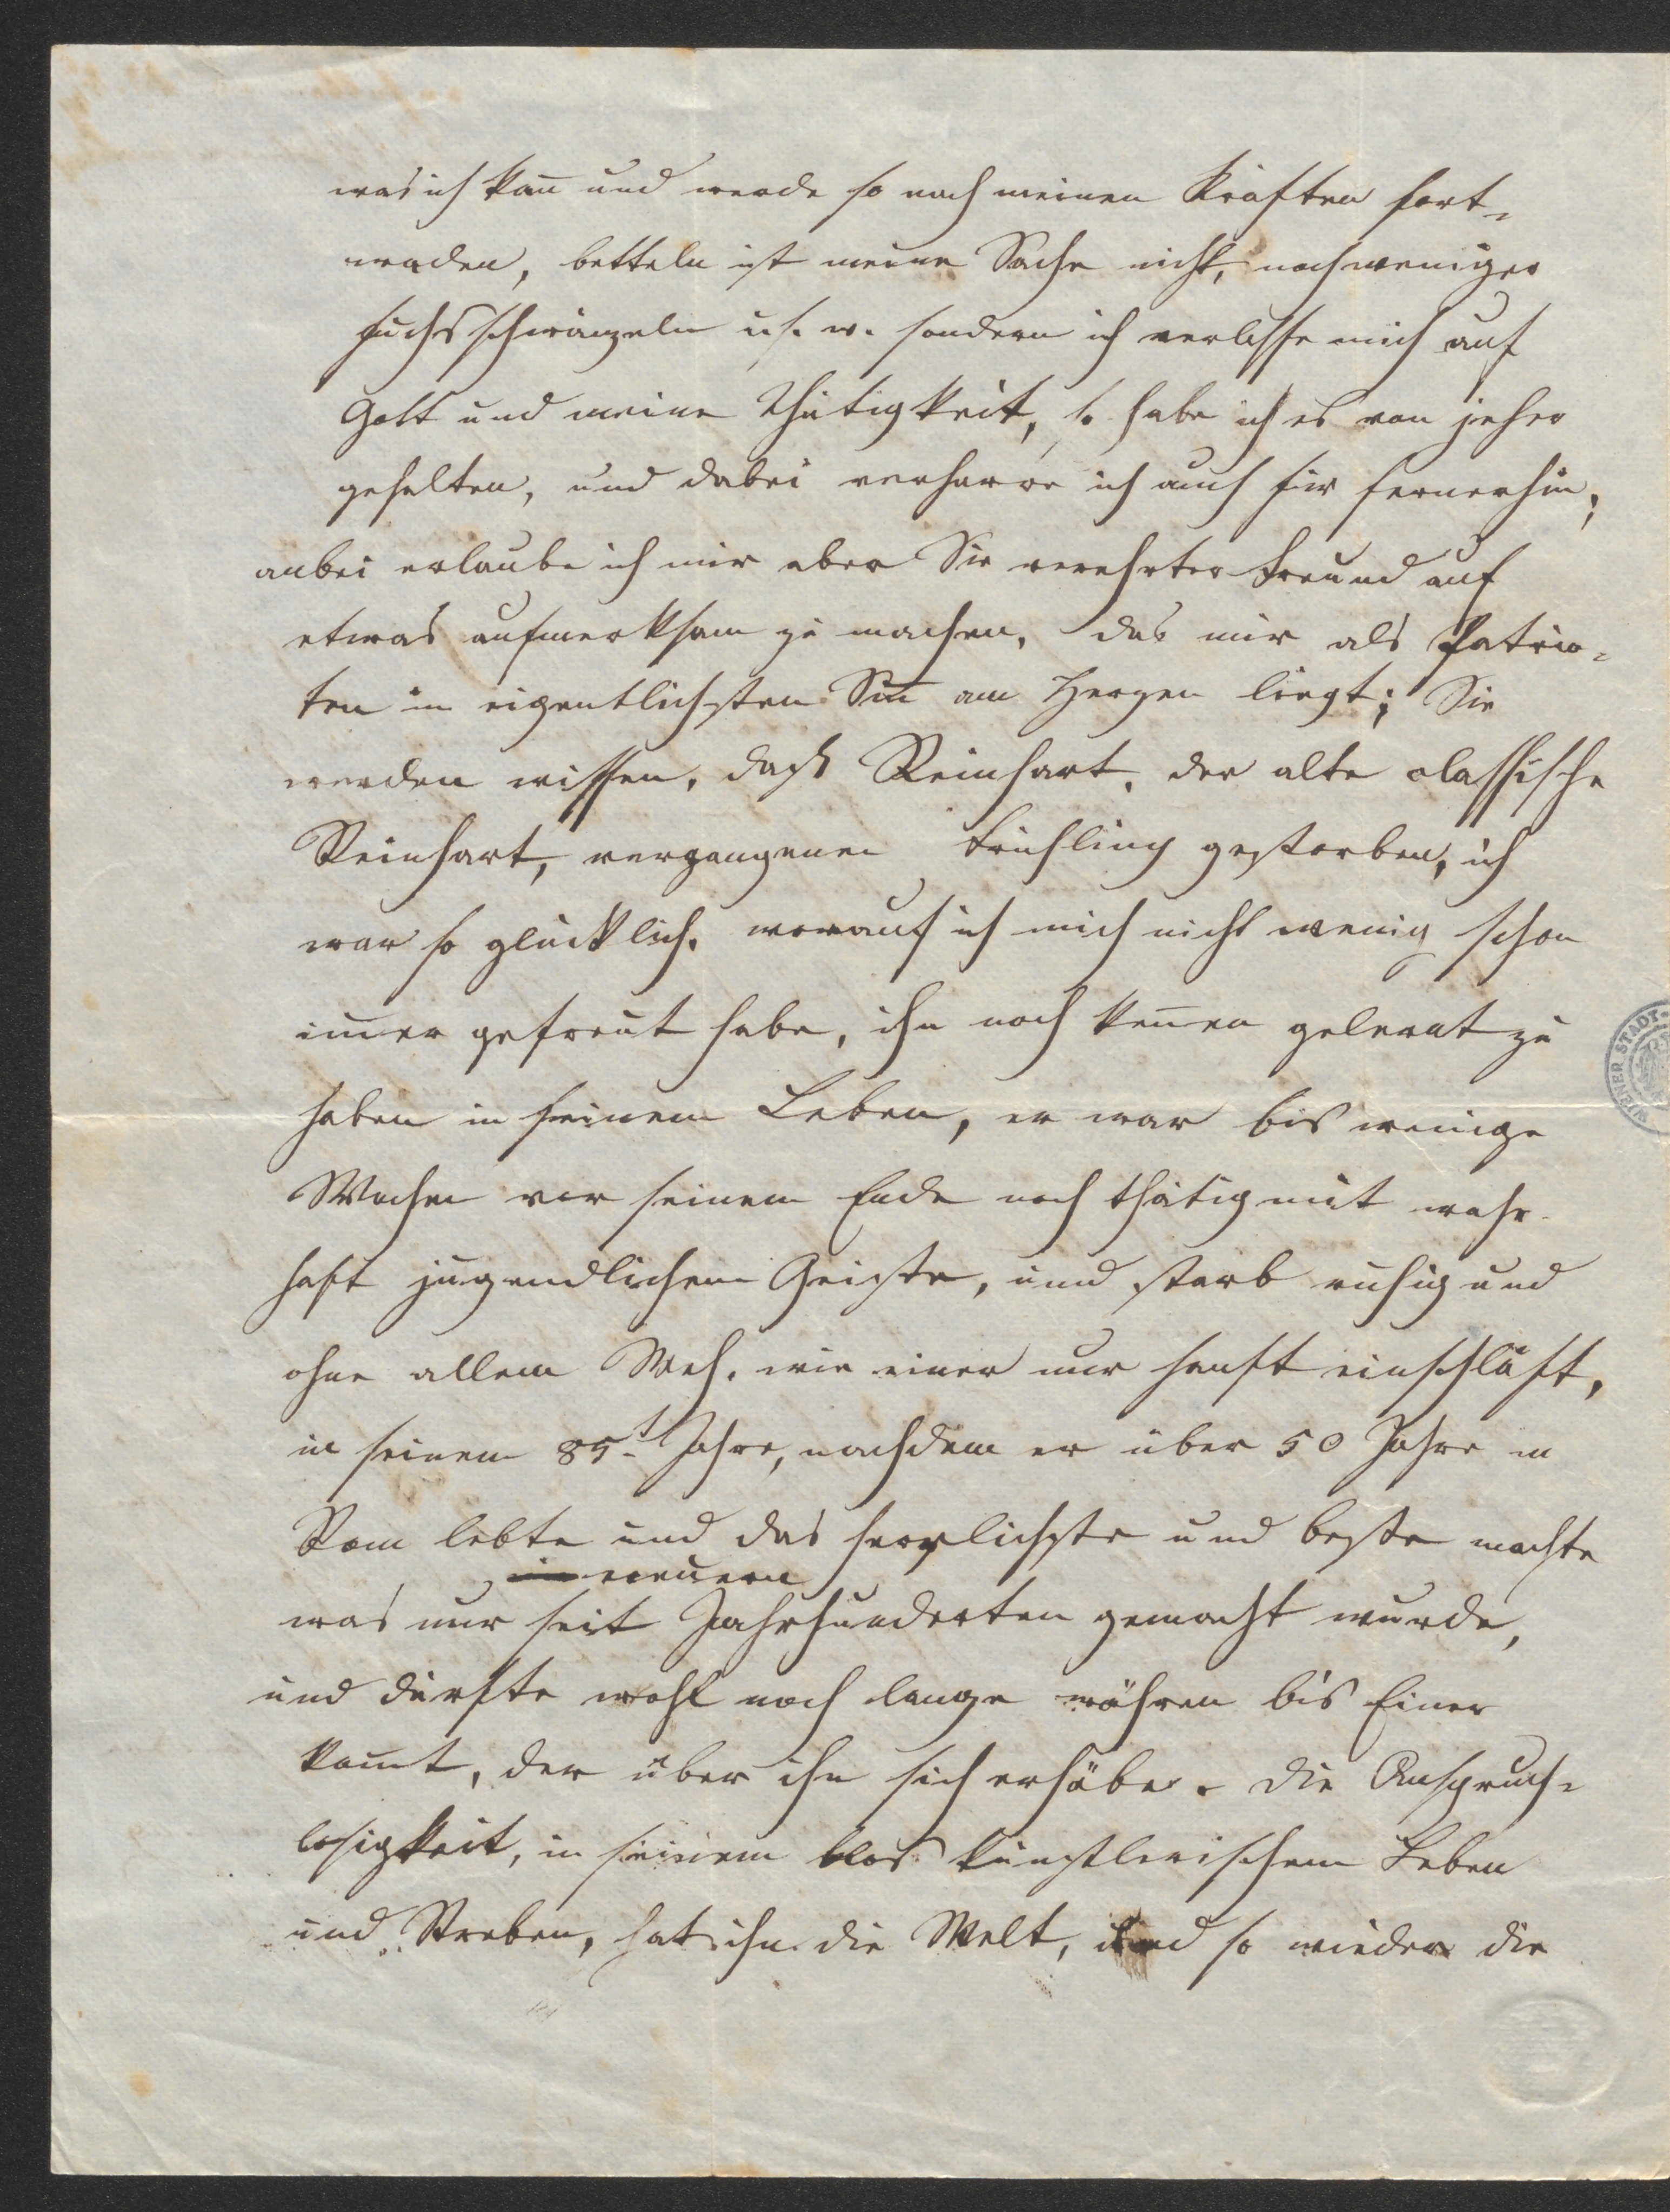 was ich kan̄ und werde so nach meinen Kräften fort-
waden, betteln ist meine Sache nicht, noch weniger
fuchsschwänzeln u. s. w. sondern ich verlasse mich auf
Gott und meine Thätigkeit, so habe ich es von jeher
gehalten, und dabei verharre ich auch für fernerhin;
anbei erlaube ich mir aber Sie verehrter Freund auf
etwas aufmerksam zu machen, das mir als Patrio-
ten im eigentlichsten Sin̄ am Herzen liegt; Sie
werden wissen, dass Reinhart, der alte classische
Reinhart, vergangenen Frühling gestorben, ich
war so glücklich, worauf ich mich nicht wenig schon
im̄er gefreut habe, ihn noch ken̄en gelernt zu
haben in seinem Leben, er war bis wenige
Wochen vor seinem Ende noch thätig mit wahr-
haft jugendlichem Geiste, und starb ruhig und
ohne allem Weh, wie einer nur sanft einschläft,
in seinem 85t Jahre, nachdem er über 50 Jahre in
Rom lebte und das herrlichste und beste machte
neuern
was nur seit Jahrhunderten gemacht wurde,
und dürfte wohl noch lange währen bis Einer
kom̄t, der über ihn sich erhübe. Die Anspruch-
losigkeit, in seinem blos künstlerischem Leben
und Streben, hat ihn die Welt, und so wieder die
WIENER STADT-